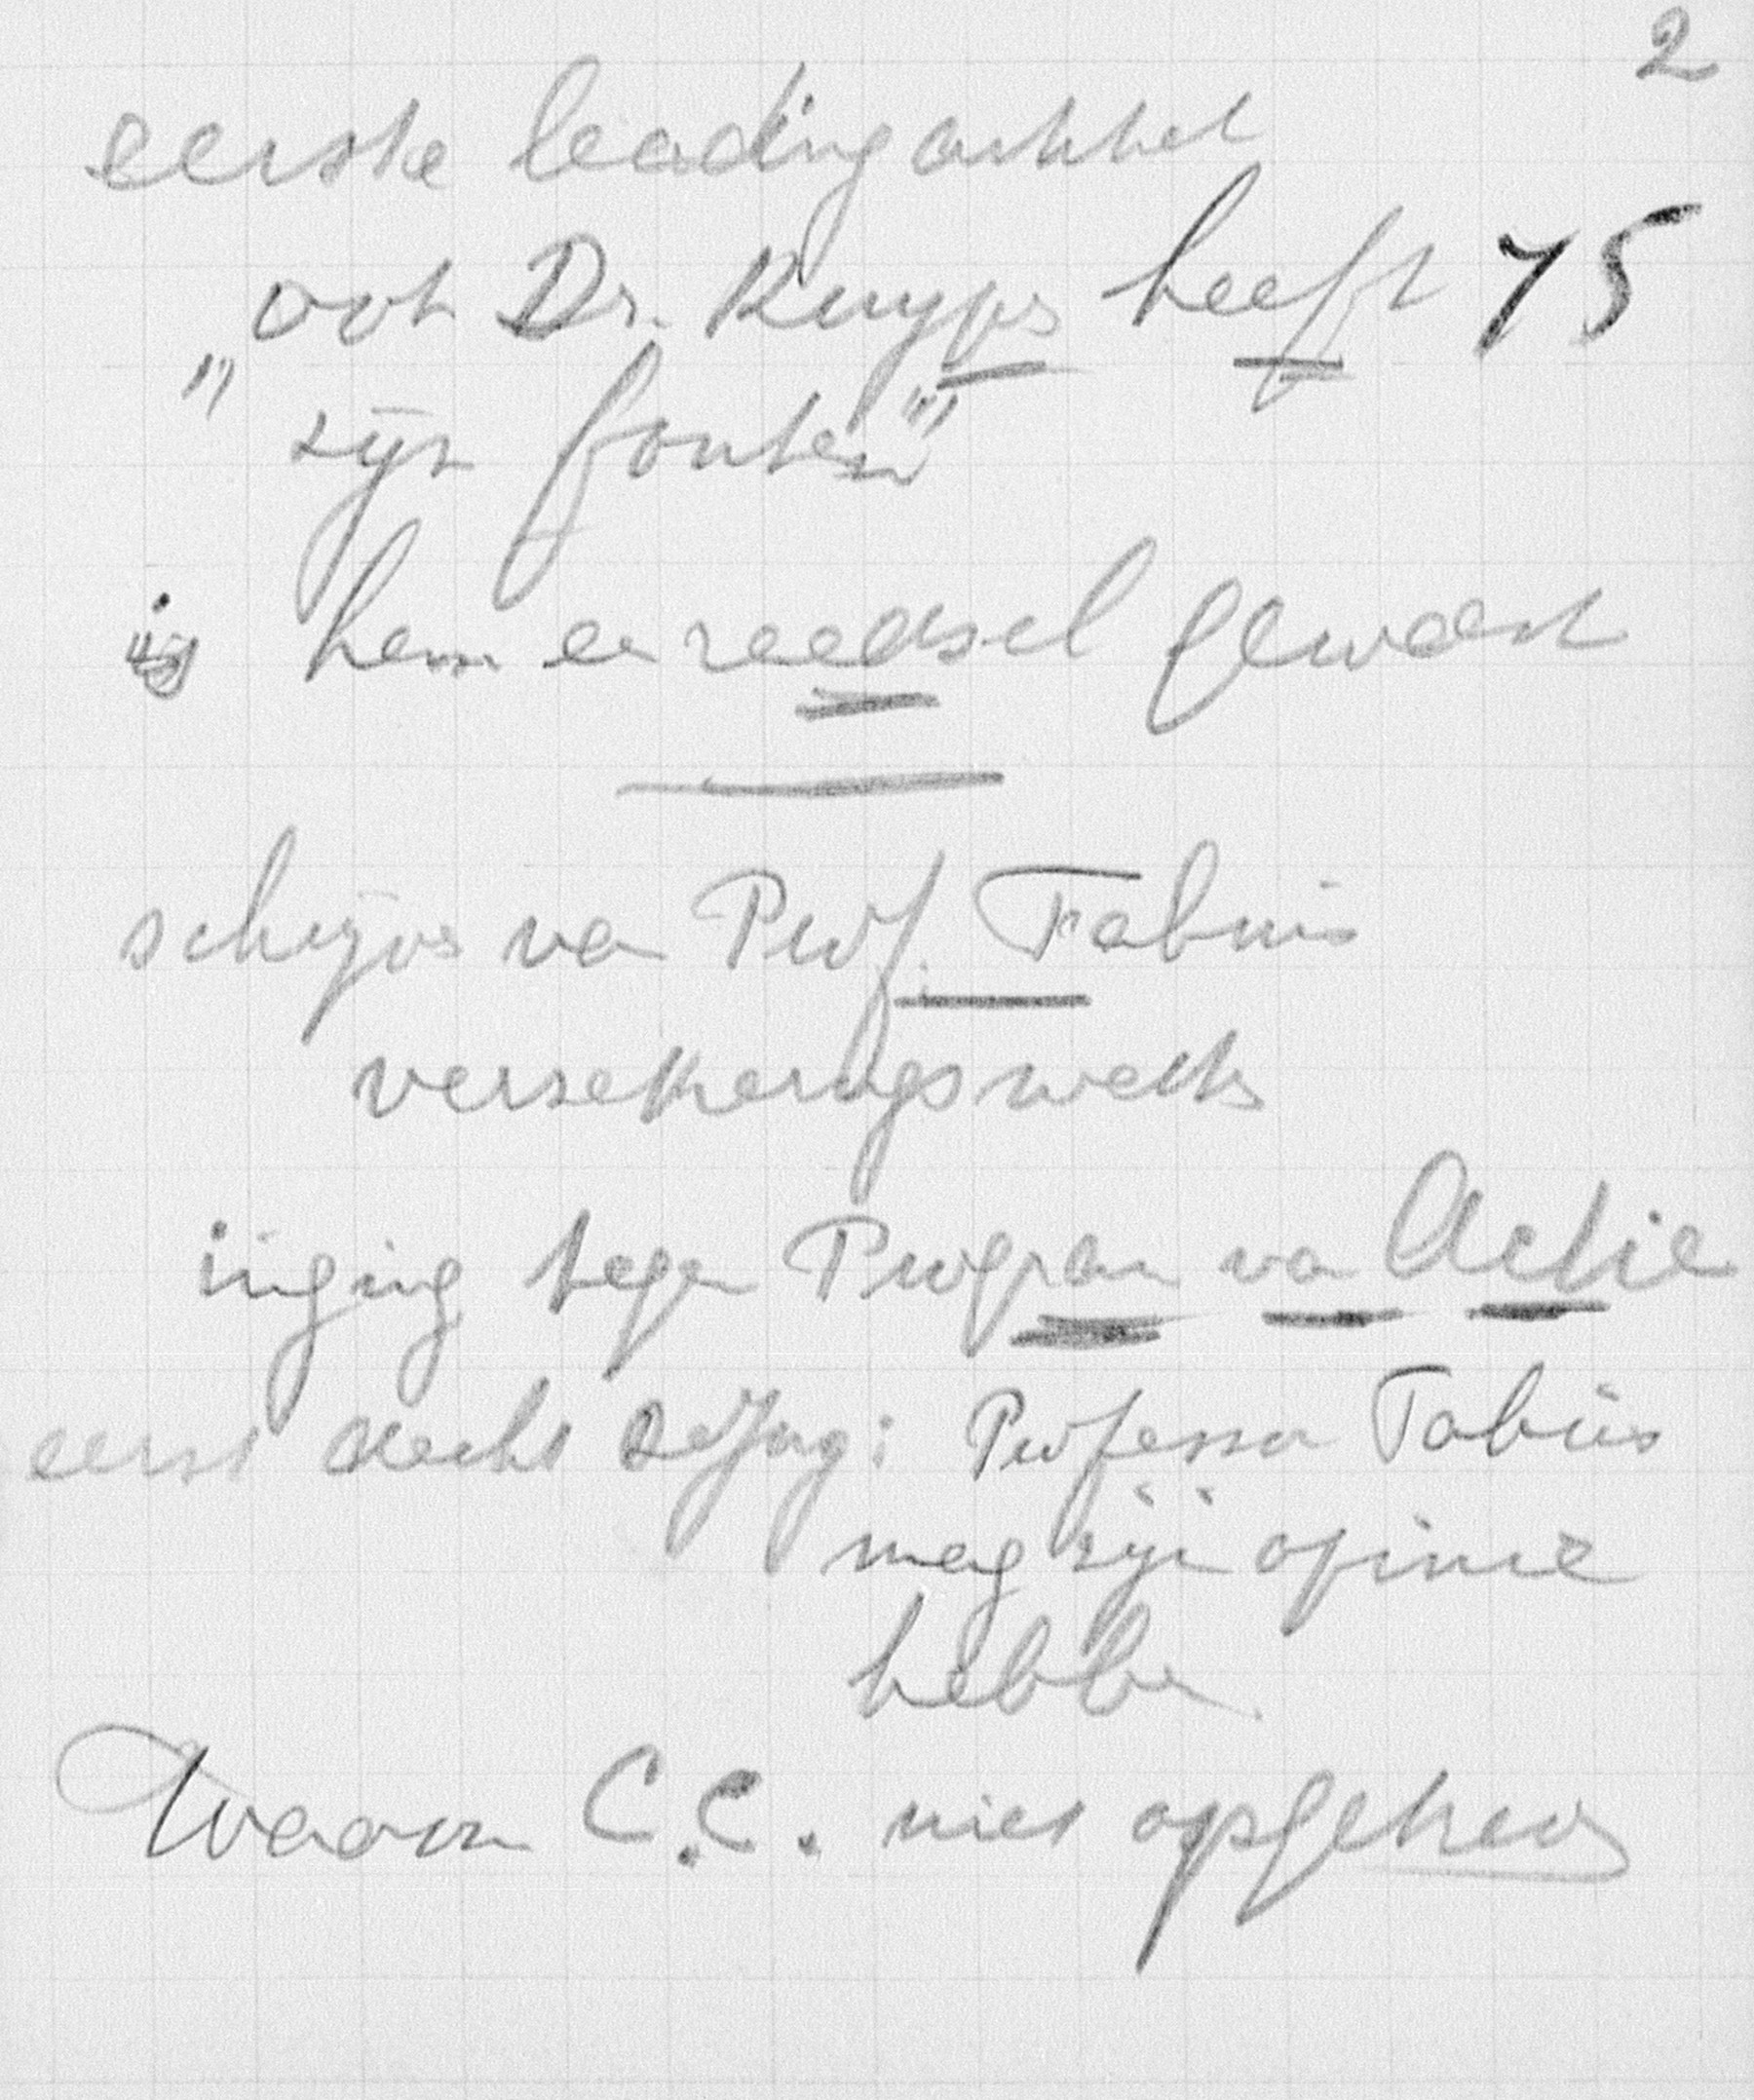 2
eerste leadingartikel
"ook Dr. Kuyper heeft 75
" zijn fouten"
is hem een raadsel geweest
schrijver van Prof. Fabius
verzekeringswetten
inging tegen Program van Actie
eerst slecht : Professor Fabius
mag zijn opinie
hebben.
Waarom C.C. niet opgeheven